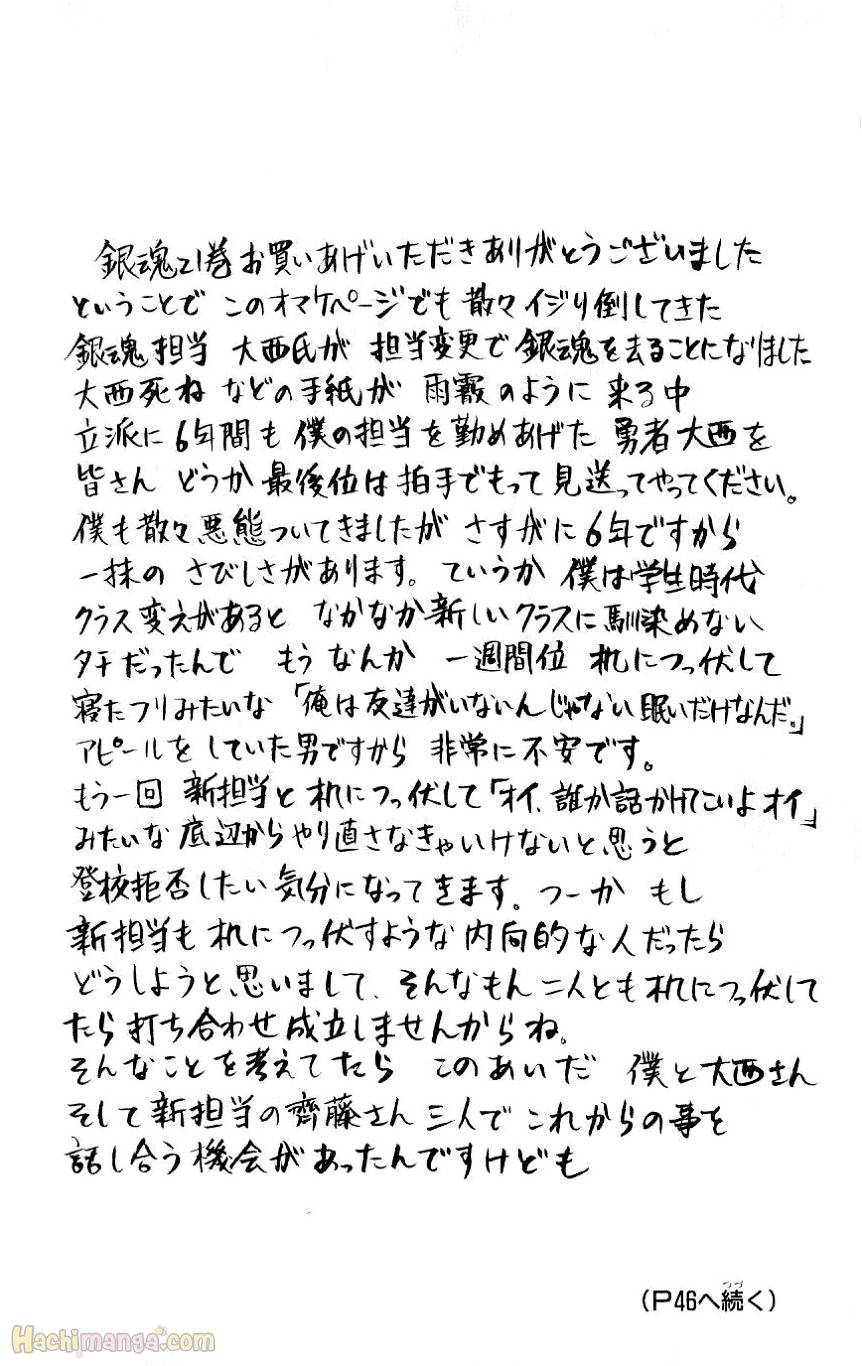 銀魂21巻お買いあげいただきありがとうございました
ということで このオマケページでも散々イジり倒してきた
銀魂担当 大西氏が 担当変更で銀魂を去ることになりました
大西死ね などの手紙が 雨霰のように 来る中
立派に 6年間も 僕の担当を勤めあげた 勇者大西を
皆さん どうか 最後位は拍手でもって見送ってやってください。
僕も散々悪態ついてきましたが さすがに6年ですから
一抹の さびしさがあります。ていうか 僕は学生時代
クラス変えがあると なかなか新しいクラスに馴染めない
タチだったんで もう なんか 一週間位 机につっ伏して
寝たフリみたいな「俺は友達がいないんじゃない眠いだけなんだ。」
アピールをしていた男ですから 非常に不安です。
もう一回 新担当と机につっ伏して「オイ、誰か話かけてこいよオイ」
みたいな底辺からやり直さなきゃいけないと思うと
登校拒否したい気分になってきます。つーか もし
新担当も机につっ伏すような内向的な人だったら
どうしようと思いまして、そんなもん二人とも机につっ伏して
たら打ち合わせ成立しませんからね。
そんなことを考えてたら このあいだ 僕と大西さん
そして新担当の齊藤さん 三人でこれからの事を
話し合う機会があったんですけども
(P46へ続く)
つづ
Hachimanga.com